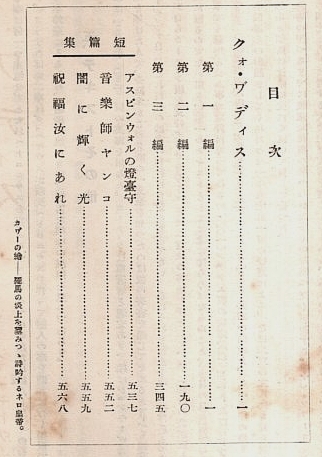 目次
クォ・ヷディス……………………一
第一編……………………一
第二編……………………一九〇
第三編……………………三四五
短篇集
アスピンウォルの燈臺守……………………五三七
音樂師ヤンコ……………………五五二
闇に輝く光……………………五五九
祝福汝にあれ……………………五六八
カヷーの繪――羅馬の炎上を望みつゝ詩吟するネロ皇帝。